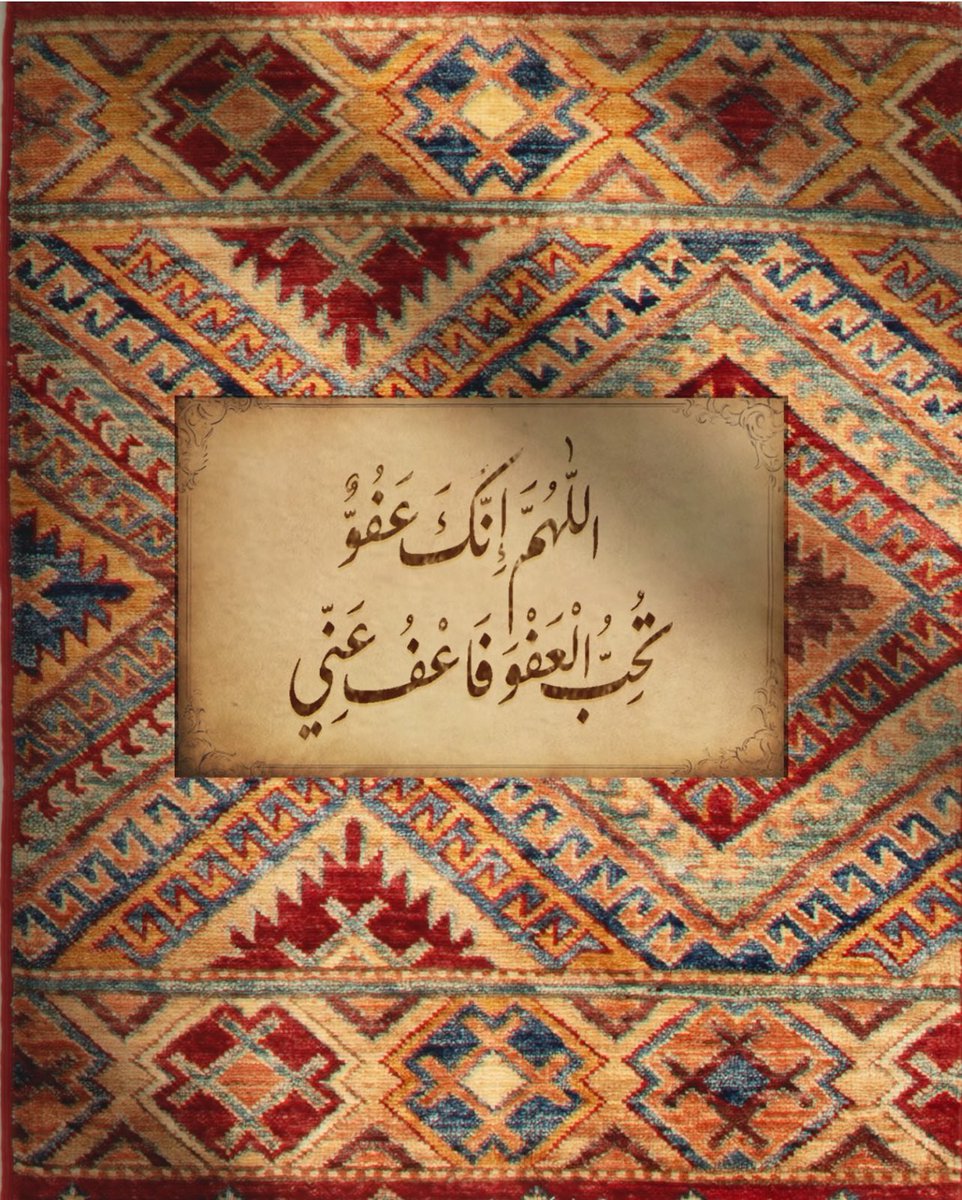 اللّٰهُمَّ إِنَّكَ عَفُوٌّ
تُحِبُّ الْعَفْوَ فَاعْفُ عَنِّي